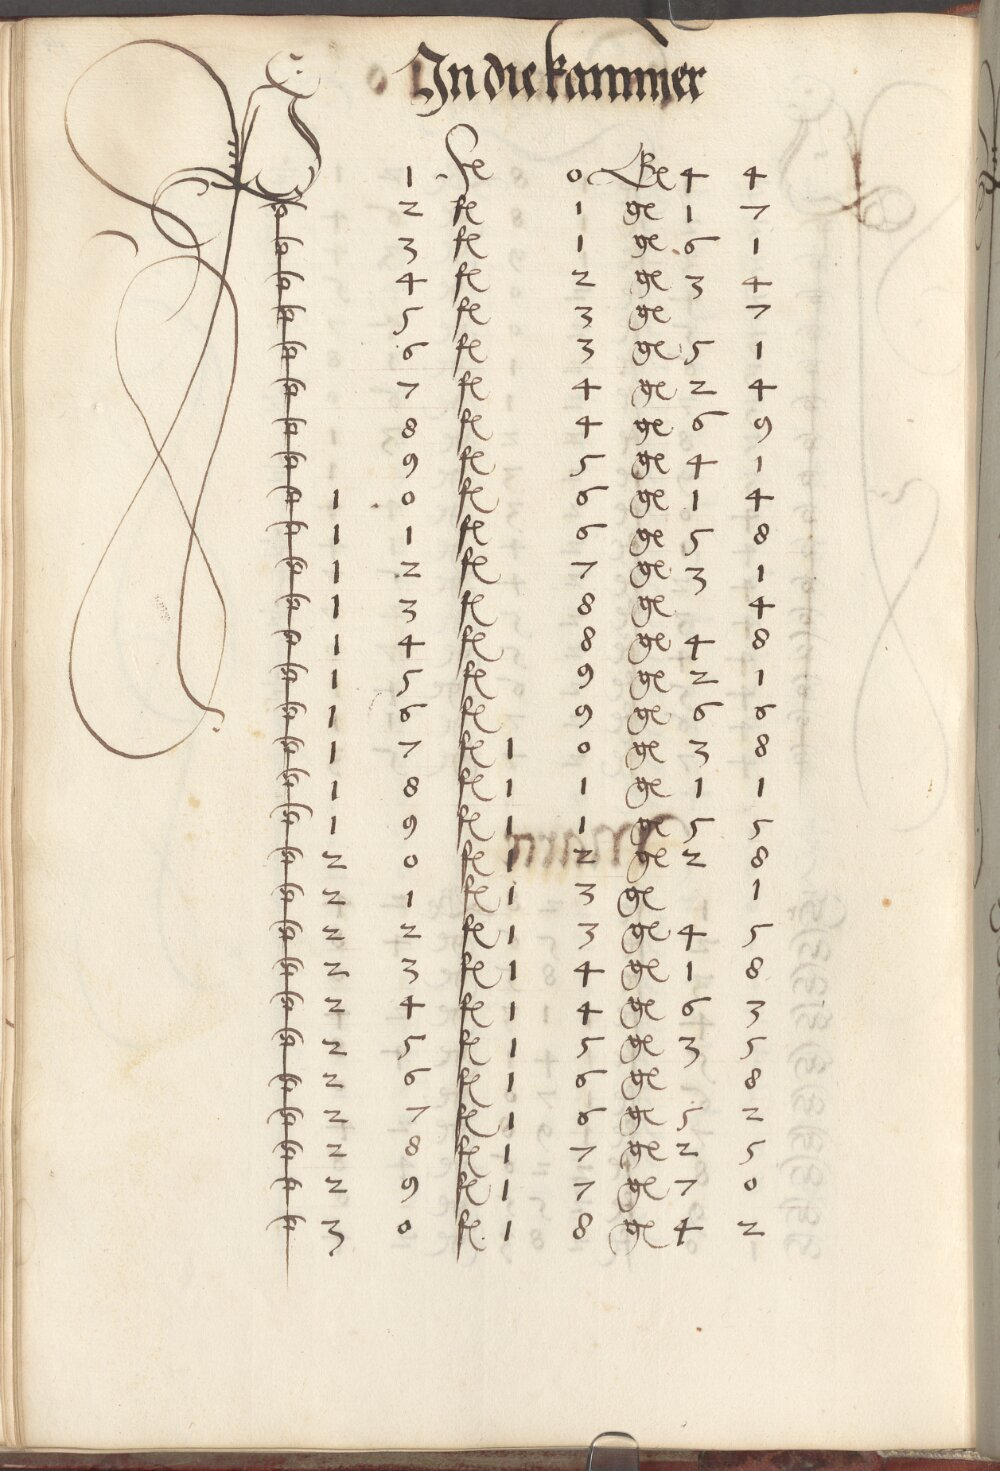 In die kammer
1 fe 0 Ge 4 4
2 fe 1 ge 1 7
3 fe 1 ge 6 1
4 fe 2 ge 3 4
5 fe 3 ge 7
6 fe 3 ge 5 1
7 fe 4 ge 2 4
8 fe 4 ge 6 9
9 fe 5 ge 4 1
1 0 fe 6 ge 1 4
1 1 fe 6 ge 5 8
1 2 fe 7 ge 3 1
1 3 fe 8 ge 4
1 4 fe 8 ge 4 8
1 5 fe 9 ge 2 1
1 6 fe 9 ge 6 6
1 7 fe 1 0 ge 3 8
1 8 fe 1 1 ge 1 1
1 9 fe 1 1 ge 5 5
2 0 fe 1 2 ge 2 8
2 1 fe 1 3 ge 1
2 2 fe 1 3 ge 4 5
2 3 fe 1 4 ge 1 8
2 4 fe 1 4 ge 6 3
2 5 fe 1 5 ge 3 5
2 6 fe 1 6 ge 8
2 7 fe 1 6 ge 5 2
2 8 fe 1 7 ge 2 5
2 9 fe 1 7 ge 7 0
3 0 fe 1 8 ge 4 2